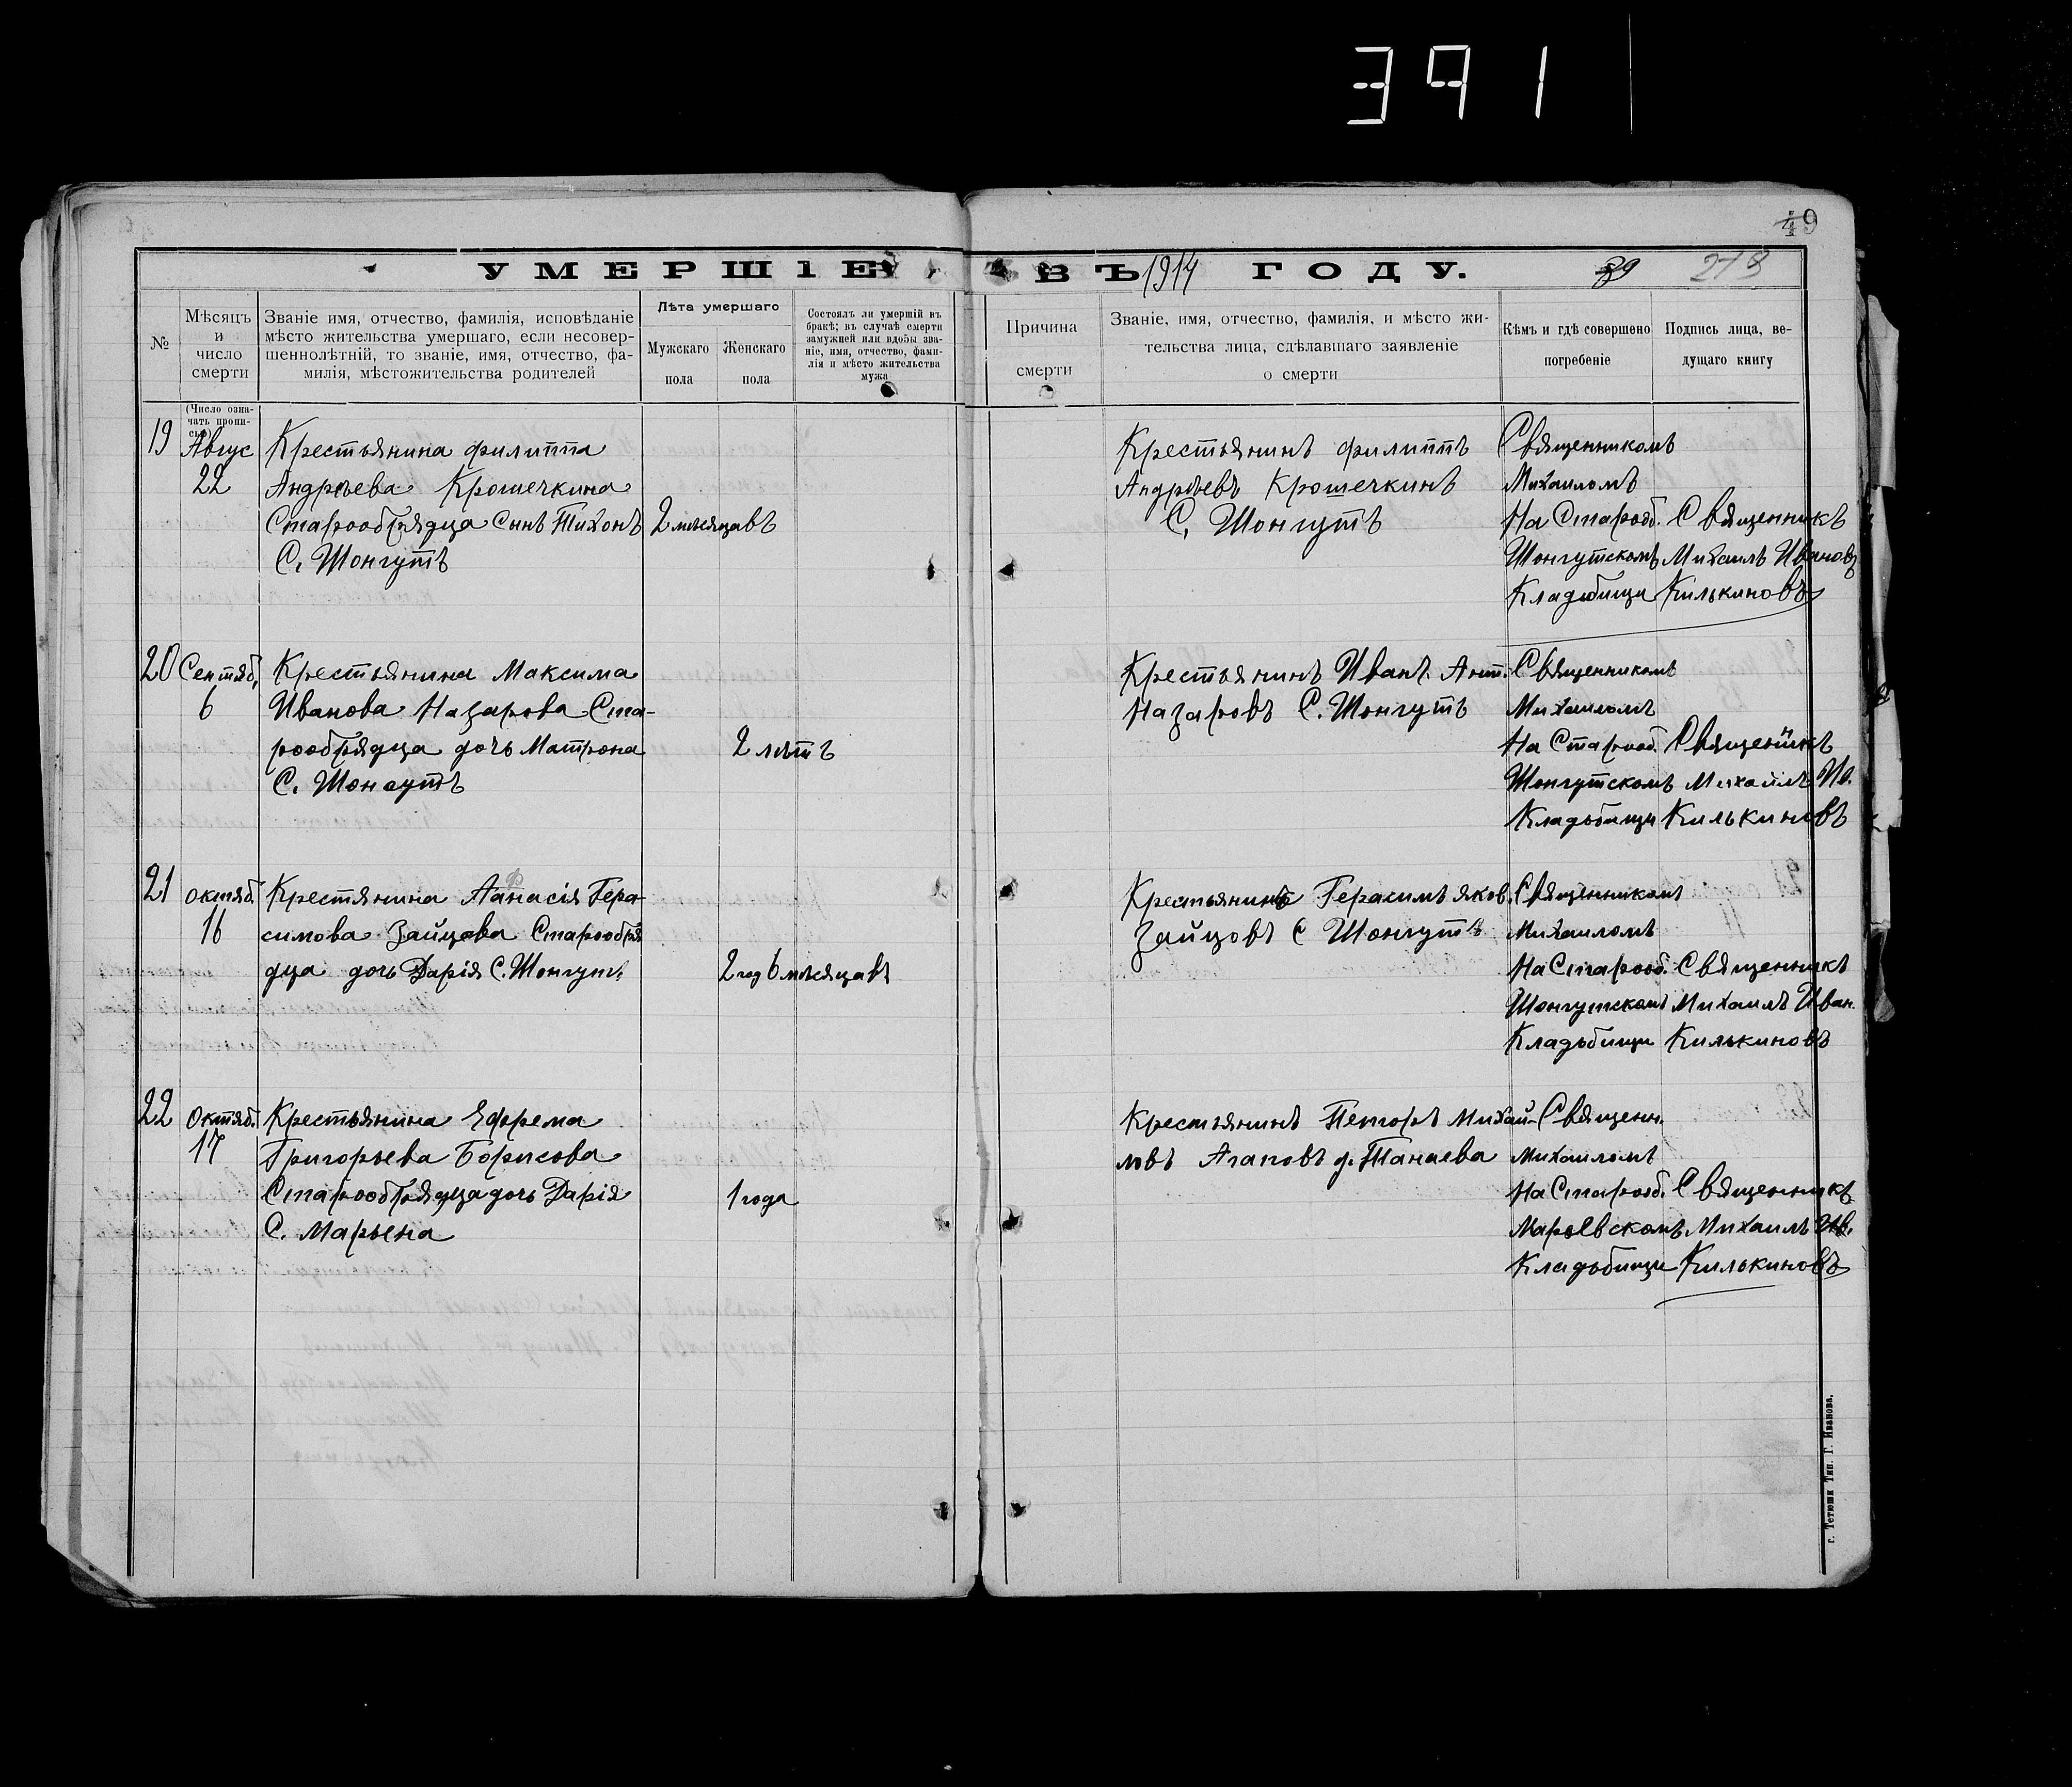 391
49
УМЕРШIЕ ВЪ 1914 ГОДУ. 39
№
Мѣсяцъ
и
число
смерти
Званіе имя, отчество, фамилія, исповѣданіе
мѣсто жительства умершаго, если несовер-
шеннолѣтній, то званіе, имя, отчество, фа-
милія, мѣстожительства родителей
Лѣта умершаго
Мужскаго
пола
Женскаго
пола
Состоялъ ли умершій въ
бракѣ; въ случаѣ смерти
замужней или вдовы зва-
ніе, имя, отчество, фами-
лія и мѣсто жительства
мужа
Причина
смерти
Званіе, имя, отчество, фамилія, и мѣсто жи-
тельства лица, сдѣлавшаго заявленіе
о смерти
Кѣмъ и гдѣ совершено
погребеніе
Подпись лица, ве-
дущаго книгу
(Число озна-
чать пропи-
сью)
19
Авгус
22
Крестьянина филиппа
Андрѣева Крошечкина
Старообрядца Сынъ Тихонъ
С. Шонгутъ
2 мѣсяцавъ
Крестьянинъ филиппъ
Андрѣевъ Крошечкинъ
С. Шонгутъ
Священникомъ
Михаиломъ
На Старооб.
Шонгутскомъ
Кладбищи
Священникъ
Михаилъ Ивановъ
Килькиновъ
20
Сентяб.
6
Крестьянина Максима
Иванова Назарова Ста-
рообрядца дочь Матрона
С. Шонгутъ
2 лѣтъ
Крестьянинъ Иванъ Ант.
Назаровъ С. Шонгутъ
Священникомъ
Михаиломъ
На Старооб.
Шонгутскомъ
Кладьбищи
Священикъ
Михаилъ Ив.
Килькиновъ
21
октяб.
16
Крестянина Афанасія Гера-
симова Зайцева Старообря
дца дочь Дарія С. Шонгут.
2 год 6 мѣсяцавъ
Крестьянинъ Герасимъ яков.
Зайцовъ С Шонгутъ
Священникомъ
Михаиломъ
На Старооб.
Шонгутскомъ
Кладьбищи
Священникъ
Михаилъ Иван.
Килькиновъ
22
Октяб.
17
Крестьянина Ефрема
Григорьева Борисова
Старообрядца дочь Дарія
С. Марьена
1 года
Крестьянинъ Петоръ Михай-
ловъ Агаповъ д. Танаева
Священн.
Михаиломъ
На Старооб.
Марьевскомъ
Кладьбищи
Священникъ
Михаилъ Ив.
Килькиновъ
г. Тетюши Тип. Г. Иванова.